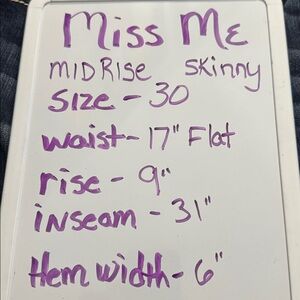 Miss Me
MIDRISE SKinny
SIZE - 30
waist - 17" Flat
rise - 9"
inseam - 31"
Hem width - 6"